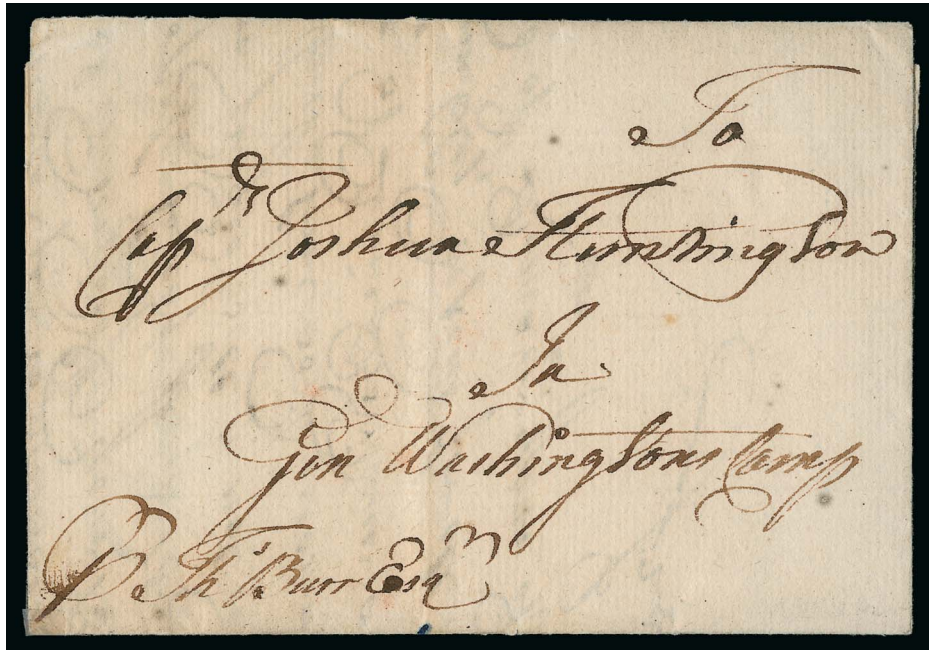 To
Capt Joshua Huntington
In
Gen Washingtons Camp
Pr Ths Burr Esqr